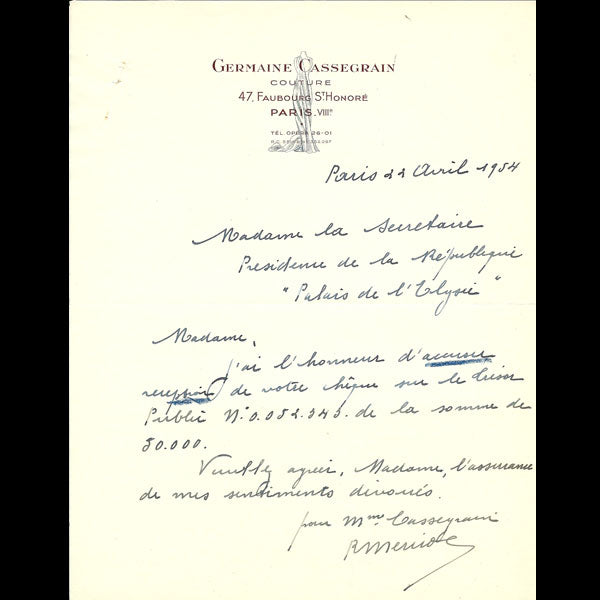 GERMAINE CASSEGRAIN
COUTURE
47, FAUBOURG ST HONORÉ
PARIS. VIIIe
TÉL. OPÉRA 26-01
Paris 22 Avril 1954
Madame la Secretaire
Presidence de la République
" Palais de l'Elysée "
Madame,
J'ai l'honneur d'accuser
reception de votre chèque sur le Trésor
Public N° 0.052.343. de la somme de
50.000.
Veuillez agréer, Madame, l'assurance
de mes sentiments dévoués.
pour Mme Cassegrain